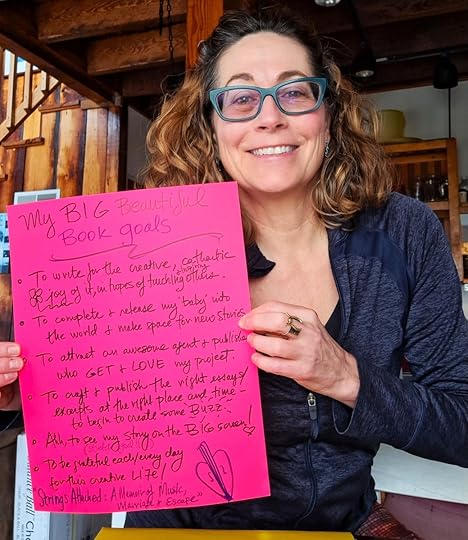 My BIG Beautiful
Book goals
• To write for the creative, cathartic
joy of it, in hopes of touching others.
• To complete & release my 'baby' into
the world & make space for new stories
• To attract an awesome agent & publisher
who GET & LOVE my project.
• To craft & publish the right essays/
excerpts at the right place and time -
to begin to create some BUZZ.
• Ah, to see my story on the BIG screen!
• To be grateful each/every day
for this creative LIFE!
"Strings Attached: A Memoir of Music,
Marriage & Escape"